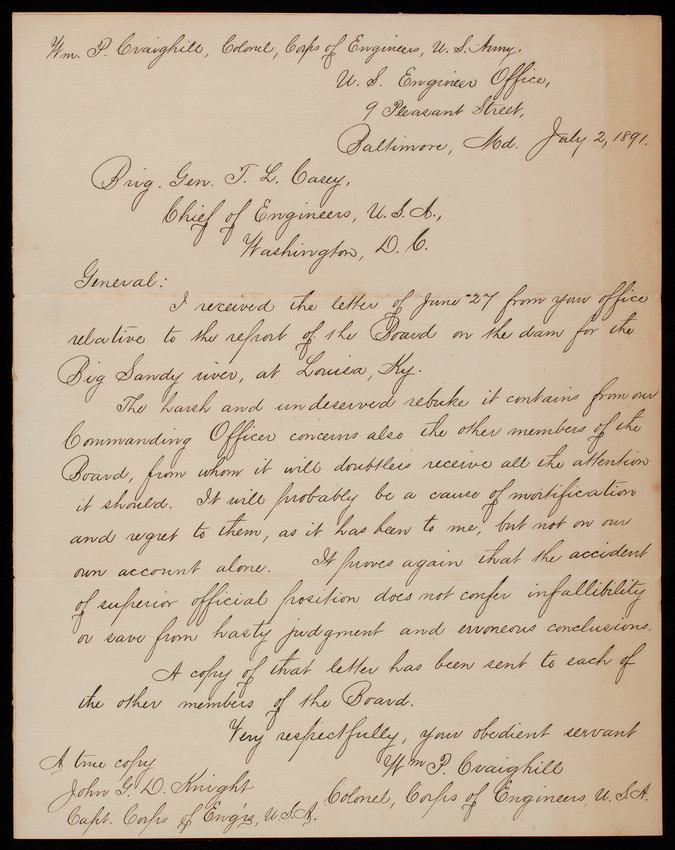 Wm. P. Craighill, Colonel, Corps of Engineers, U. S. Army.
U. S. Engineer Office,
9 Pleasant Street,
Baltimore, Md. July 2, 1891.
Brig. Gen. T. L. Casey,
Chief of Engineers, U. S. A.,
Washington, D. C.
General:
I received the letter of June 27 from your office
relative to the report of the Board on the dam for the
Big Sandy river, at Louisa, Ky.
The harsh and undeserved rebuke it contains from our
Commanding Officer concerns also the other members of the
Board, from whom it will doubtless receive all the attention
it should. It will probably be a cause of mortification
and regret to them, as it has been to me, but not on our
own account alone. It proves again that the accident
of superior official position does not confer infallibility
or save from hasty judgment and erroneous conclusions.
A copy of that letter has been sent to each of
the other members of the Board.
Very respectfully, your obedient servant
Wm P. Craighill
Colonel, Corps of Engineers, U. S. A.
A true copy
John G. D. Knight
Capt. Corps of Eng'rs, U. S. A.